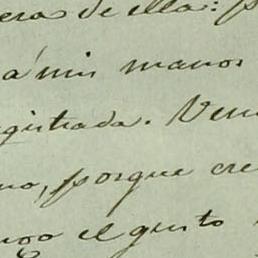 era de ella: p
a mis manos
gistrada. Ven
no, porque cre
ngo el gusto